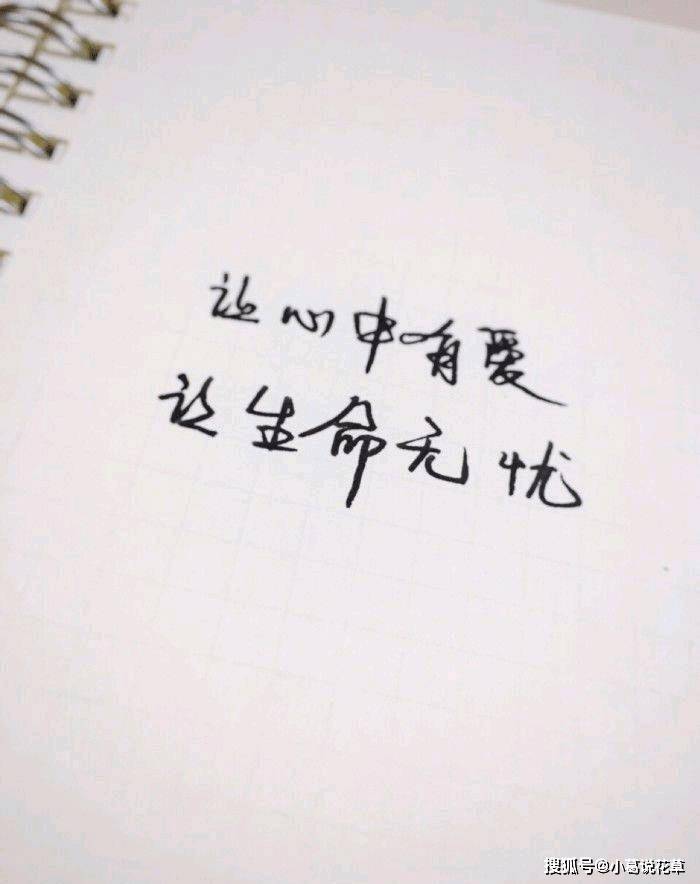 让心中有爱
让生命无忧
搜狐号@小葛说花草